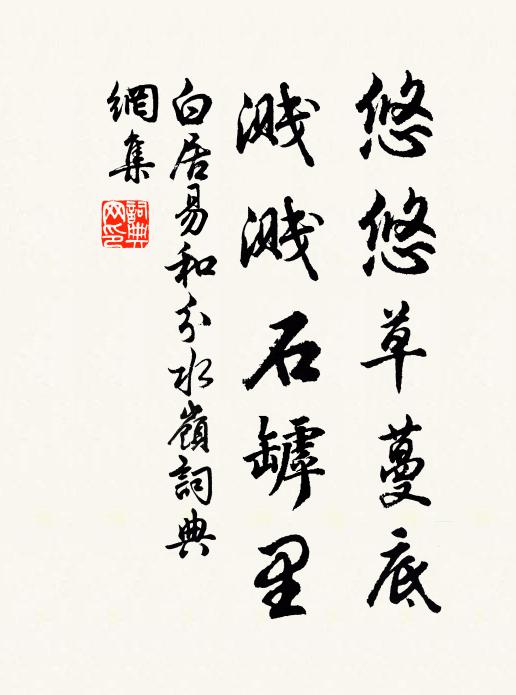 悠悠草蔓底
濺濺石罅里
白居易和分水嶺詞典
網集
詞典網印